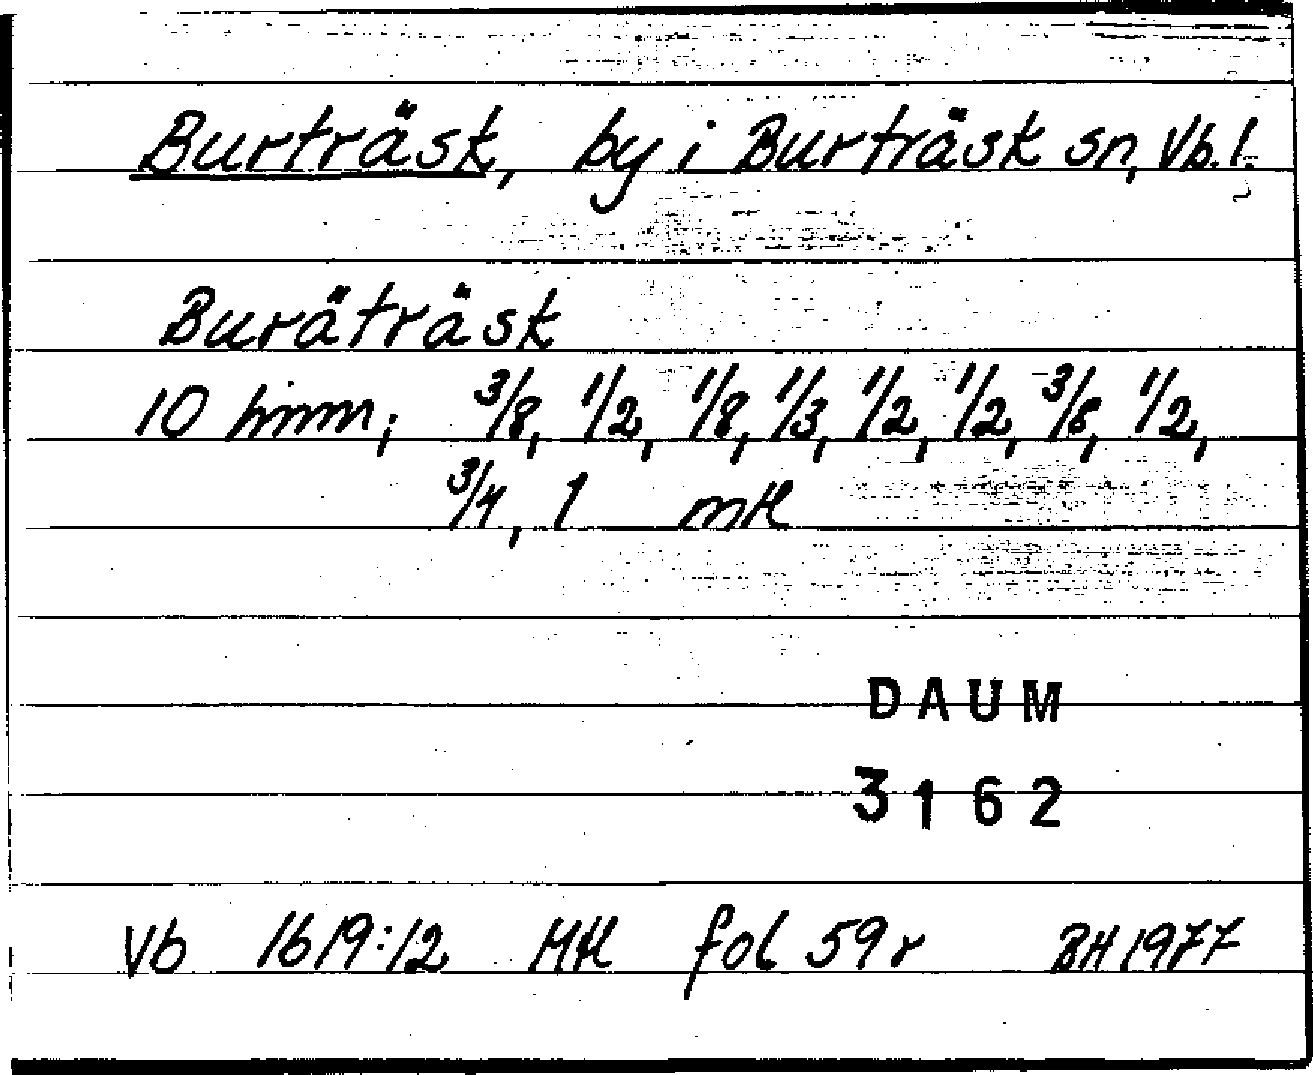 Burträsk, by i Burträsk sn, Vb. l.
Buräträsk
10 hmm; 3/8, 1/2, 1/8, 1/3, 1/2, 1/2, 3/8, 1/2,
3/4, 1 mtl
DAUM
3162
Vb 1619:12 Mtl fol 59 r BH 1977